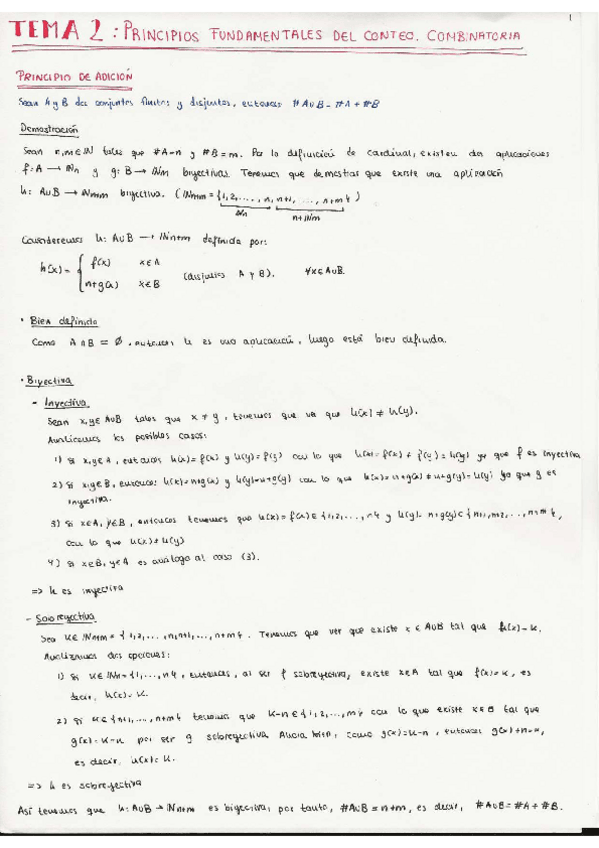 1
TEMA 2: PRINCIPIOS FUNDAMENTALES DEL CONTEO. COMBINATORIA
PRINCIPIO DE ADICIÓN
Sean A y B dos conjuntos finitos y disjuntos, entonces #A∪B = #A + #B
Demostración
Sean n,m ∈ ℕ tales que #A=n y #B=m. Por la definición de cardinal, existen dos aplicaciones
f: A → ℕn y g: B → ℕm biyectivas. Tenemos que demostrar que existe una aplicación
h: A∪B → ℕn+m biyectiva. (ℕn+m = {1,2,..., n, n+1, ..., n+m})
ℕn n+ℕm
Consideremos h: A∪B → ℕn+m definida por:
h(x) = { f(x) x∈A
n+g(x) x∈B (disjuntos A y B). ∀x∈A∪B.
· Bien definida
Como A∩B = ∅, entonces h es una aplicación, luego está bien definida.
· Biyectiva
- Inyectiva
Sean x,y∈ A∪B tales que x ≠ y, tenemos que ver que h(x) ≠ h(y).
Analicemos los posibles casos:
1) Si x,y∈A, entonces h(x)=f(x) y h(y)=f(y) con lo que h(x)=f(x) ≠ f(y)=h(y) ya que f es inyectiva
2) Si x,y∈B, entonces h(x)=n+g(x) y h(y)=n+g(y) con lo que h(x)=n+g(x) ≠ n+g(y)=h(y) ya que g es
inyectiva.
3) Si x∈A, y∈B, entonces tenemos que h(x)=f(x)∈{1,2,...,n} y h(y)=n+g(y)∈{n+1,n+2,...,n+m},
con lo que h(x)≠h(y)
4) Si x∈B, y∈A es análogo al caso (3).
=> h es inyectiva
- Sobreyectiva
Sea k∈ℕn+m = {1,2,...,n,n+1,...,n+m}. Tenemos que ver que existe x ∈ A∪B tal que h(x)=k.
Analizamos dos opciones:
1) Si k∈ℕn={1,...,n}, entonces, al ser f sobreyectiva, existe x∈A tal que f(x)=k, es
decir, h(x)=k.
2) Si k∈{n+1,...,n+m} tenemos que k-n∈{1,2,...,m} con lo que existe x∈B tal que
g(x)=k-n por ser g sobreyectiva. Ahora bien, como g(x)=k-n, entonces g(x)+n=k,
es decir, h(x)=k.
=> h es sobreyectiva
Así tenemos que h: A∪B → ℕn+m es biyectiva, por tanto, #A∪B = n+m, es decir, #A∪B = #A + #B.